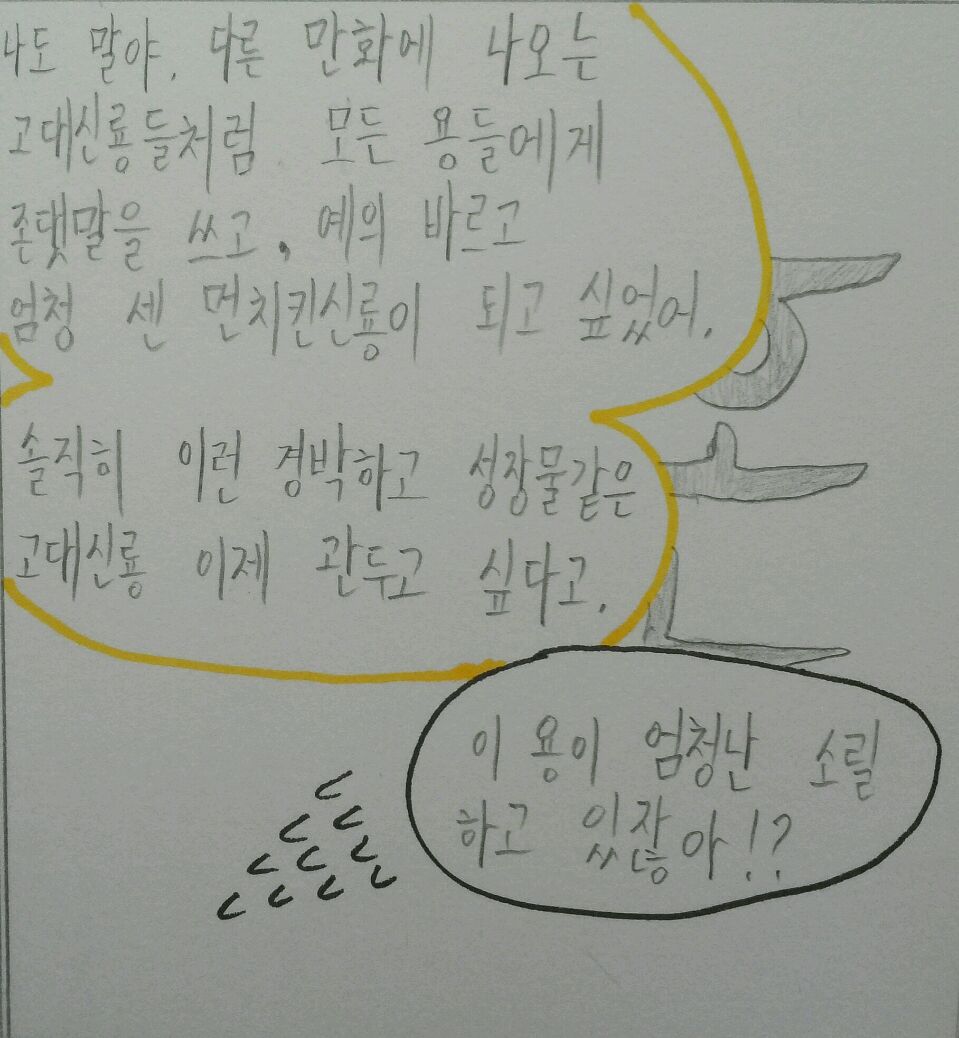 나도 말야, 다른 만화에 나오는
고대신룡들처럼 모든 용들에게
존댓말을 쓰고, 예의 바르고
엄청 센 먼치킨신룡이 되고 싶었어.
솔직히 이런 경박하고 성장물같은
고대신룡 이제 관두고 싶다고.
이 용이 엄청난 소릴
하고 있잖아!?